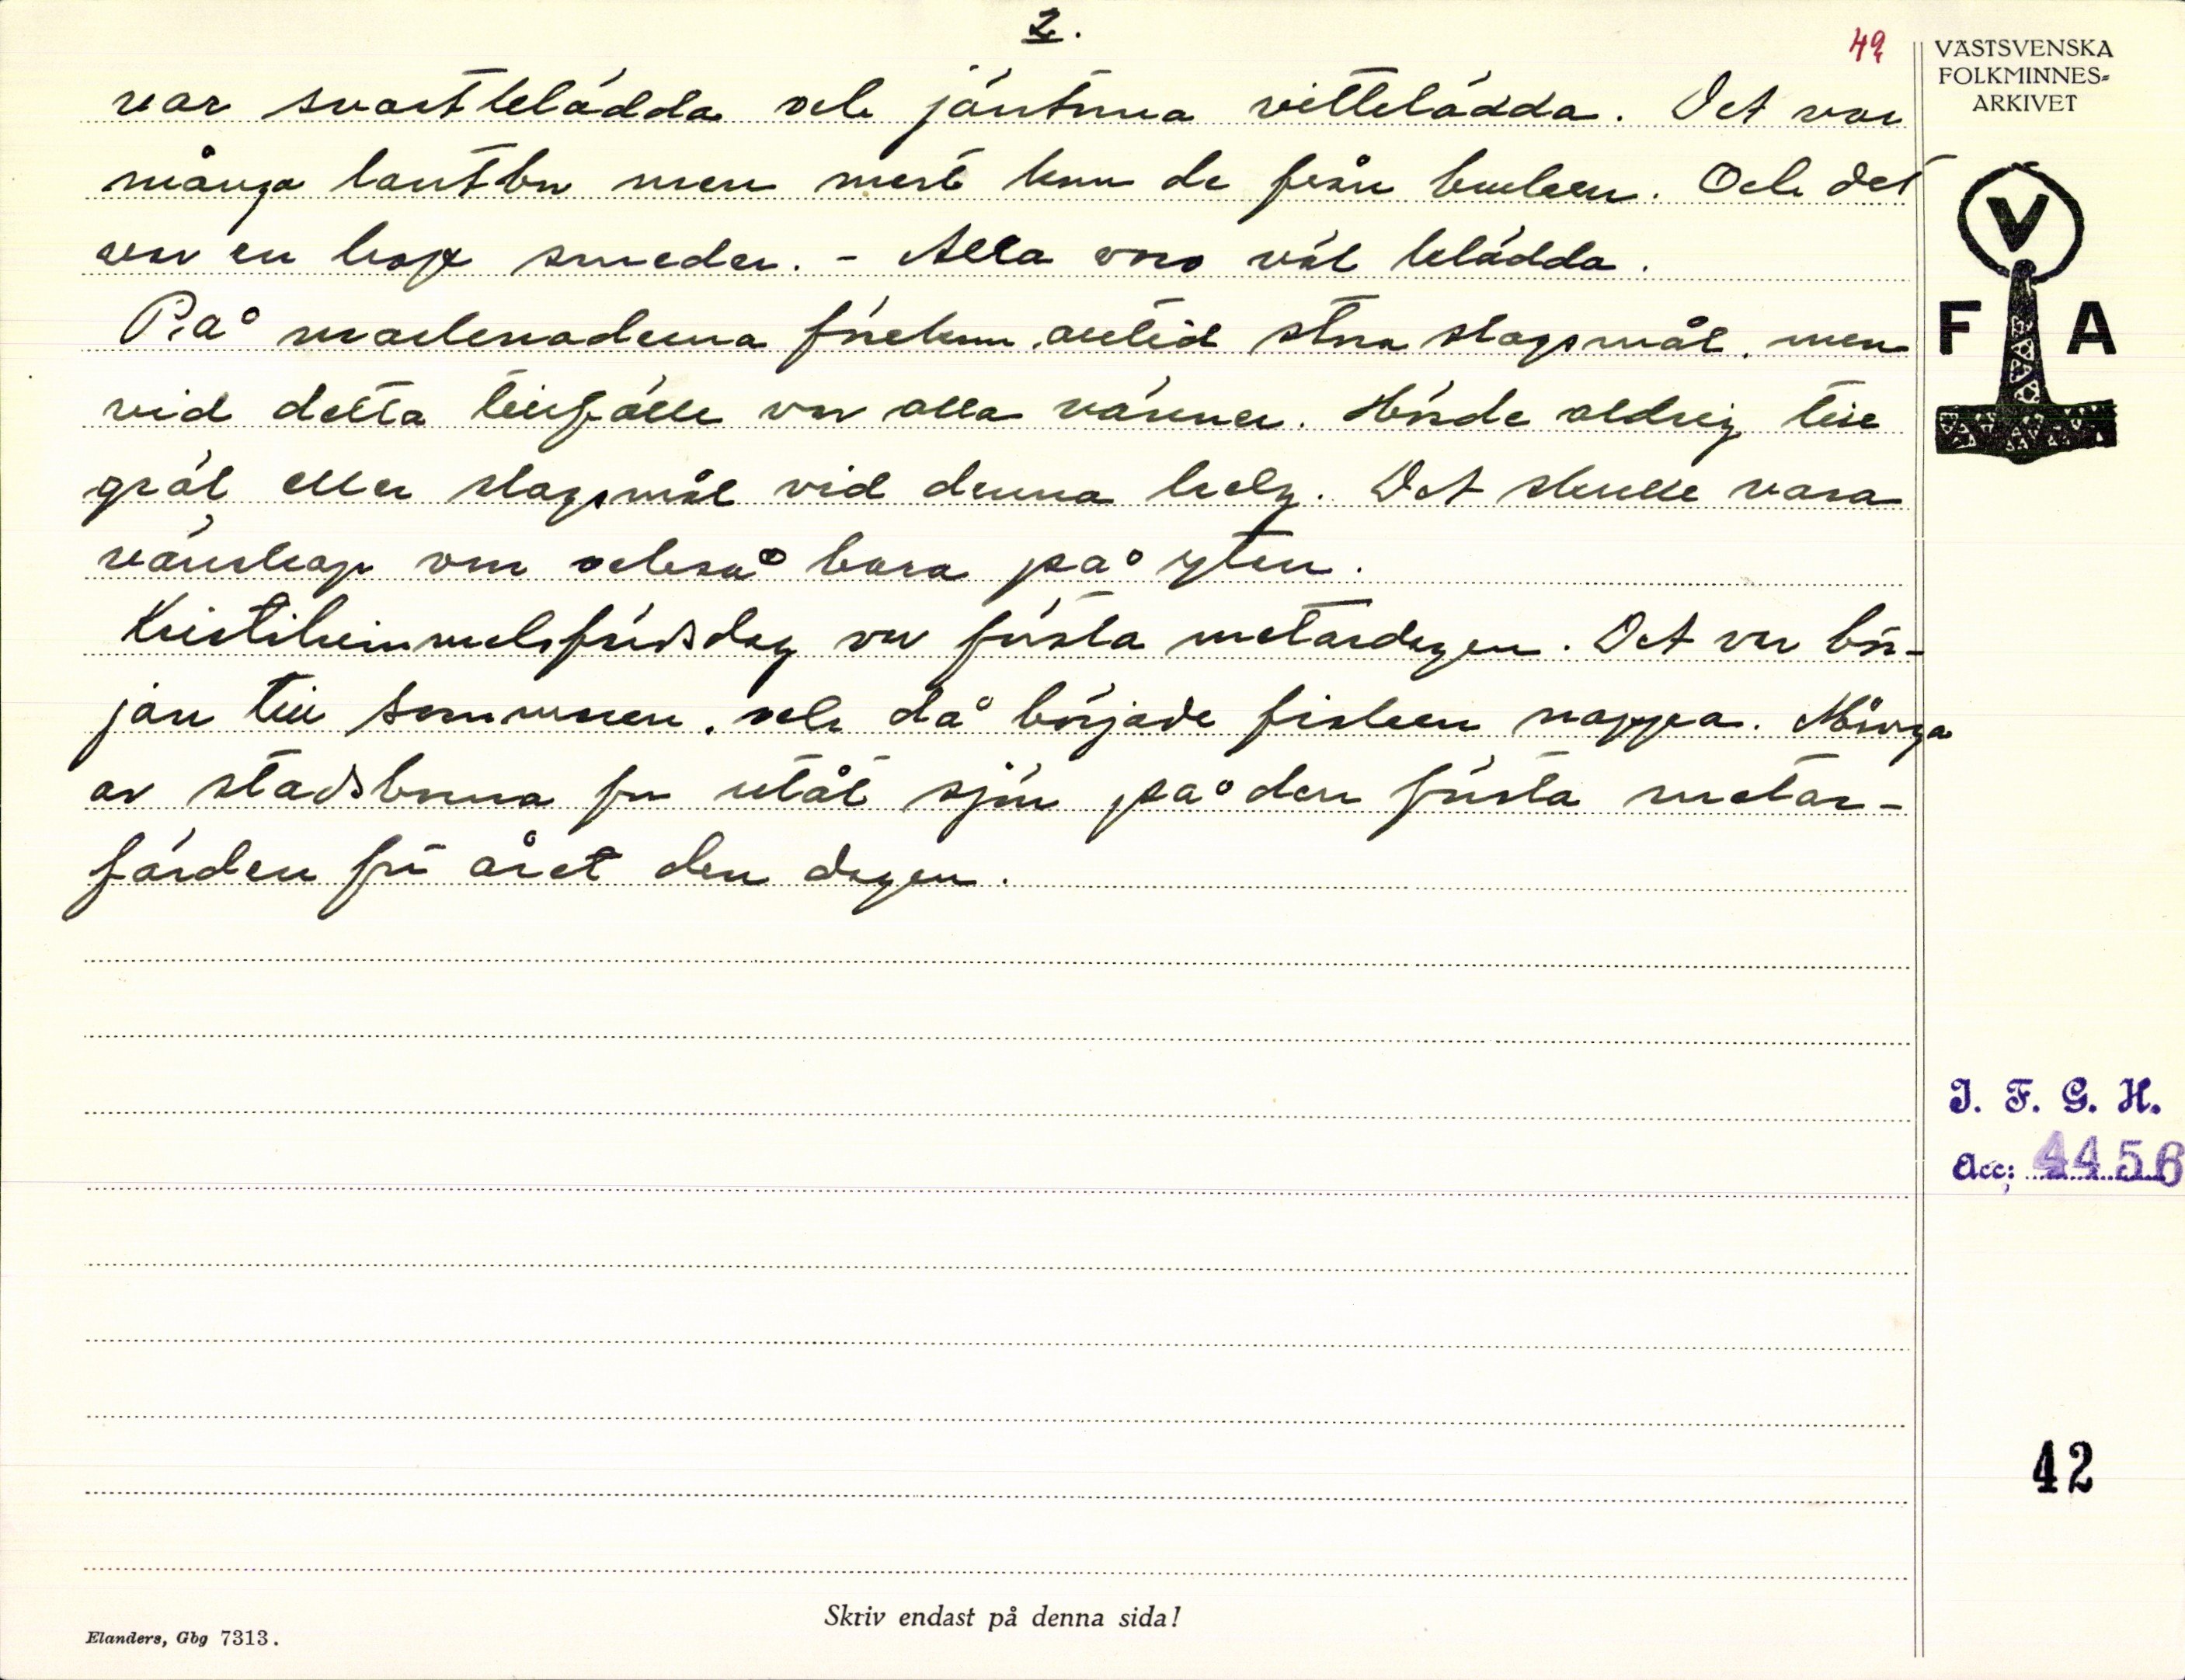 2.
49
VÄSTSVENSKA
FOLKMINNES=
ARKIVET
var svartklädda och jäntnna vittklädda. Det var
många lantbor men mest kom de från bruken. Och det
var en hop smeder. - Alla voro väl klädda.
På marknaderna förekom alltid stora slagsmål, men
vid detta tillfälle var alla vänner. Hörde aldrig till
gräl eller slagsmål vid denna helg. Det skulle vara
vänskap om också bara på ytan.
Kristihimmelsfärdsdag var första metardagen. Det var bör-
jan till sommaren, och då började fisken nappa. Många
av stadsborna for utåt sjön på den första metar-
färden för året den dagen.
V
F A
I. F. G. H.
Acc: 4456
42
Skriv endast på denna sida!
Elanders, Gbg 7313.